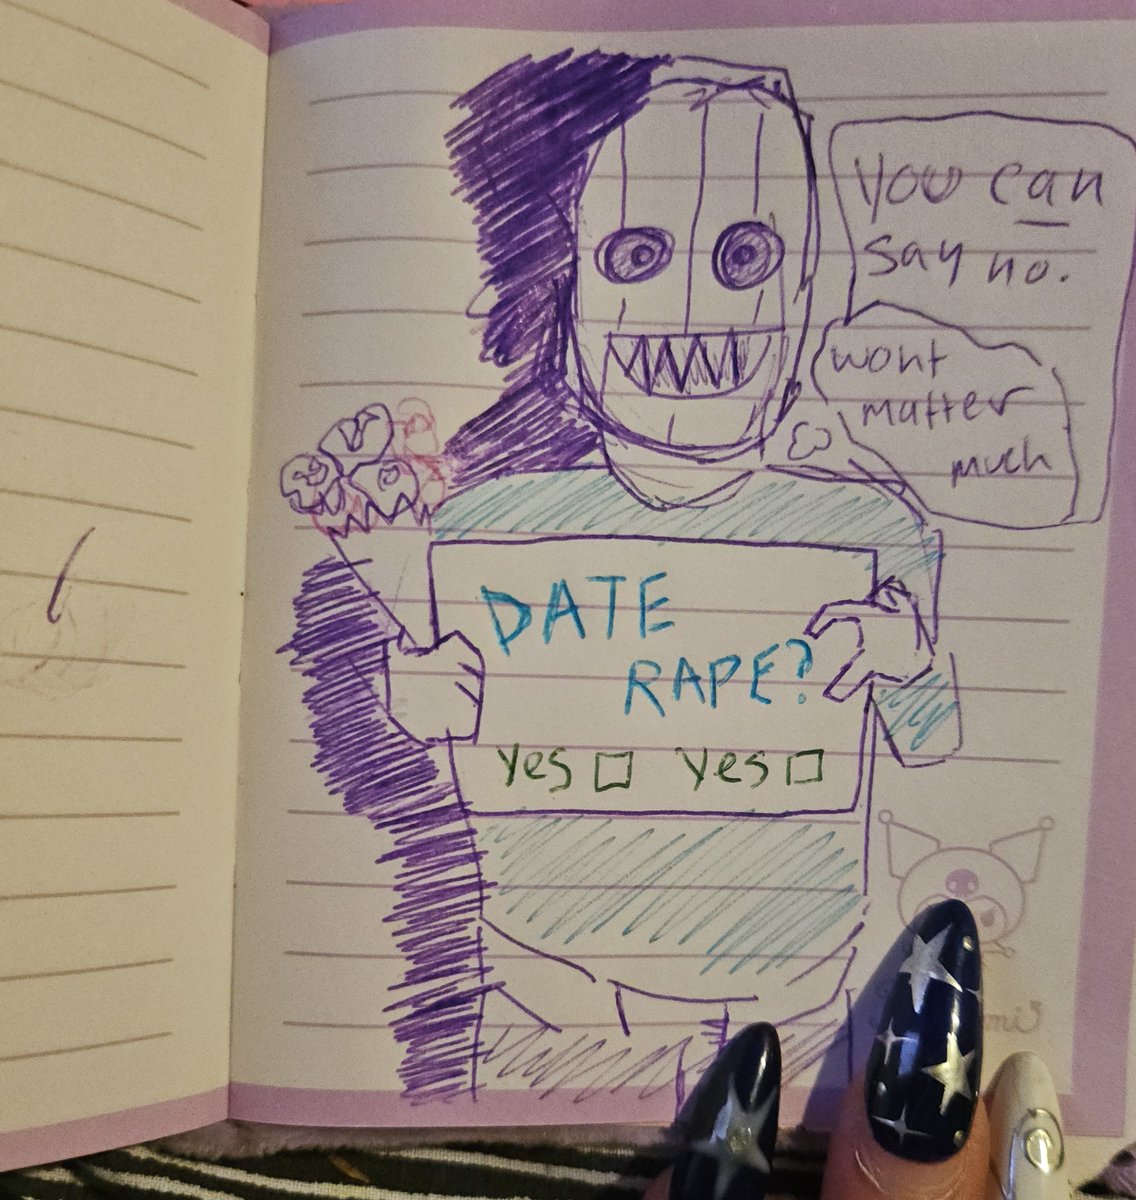 you can
say no.
wont
matter
much
DATE
RAPE?
yes yes